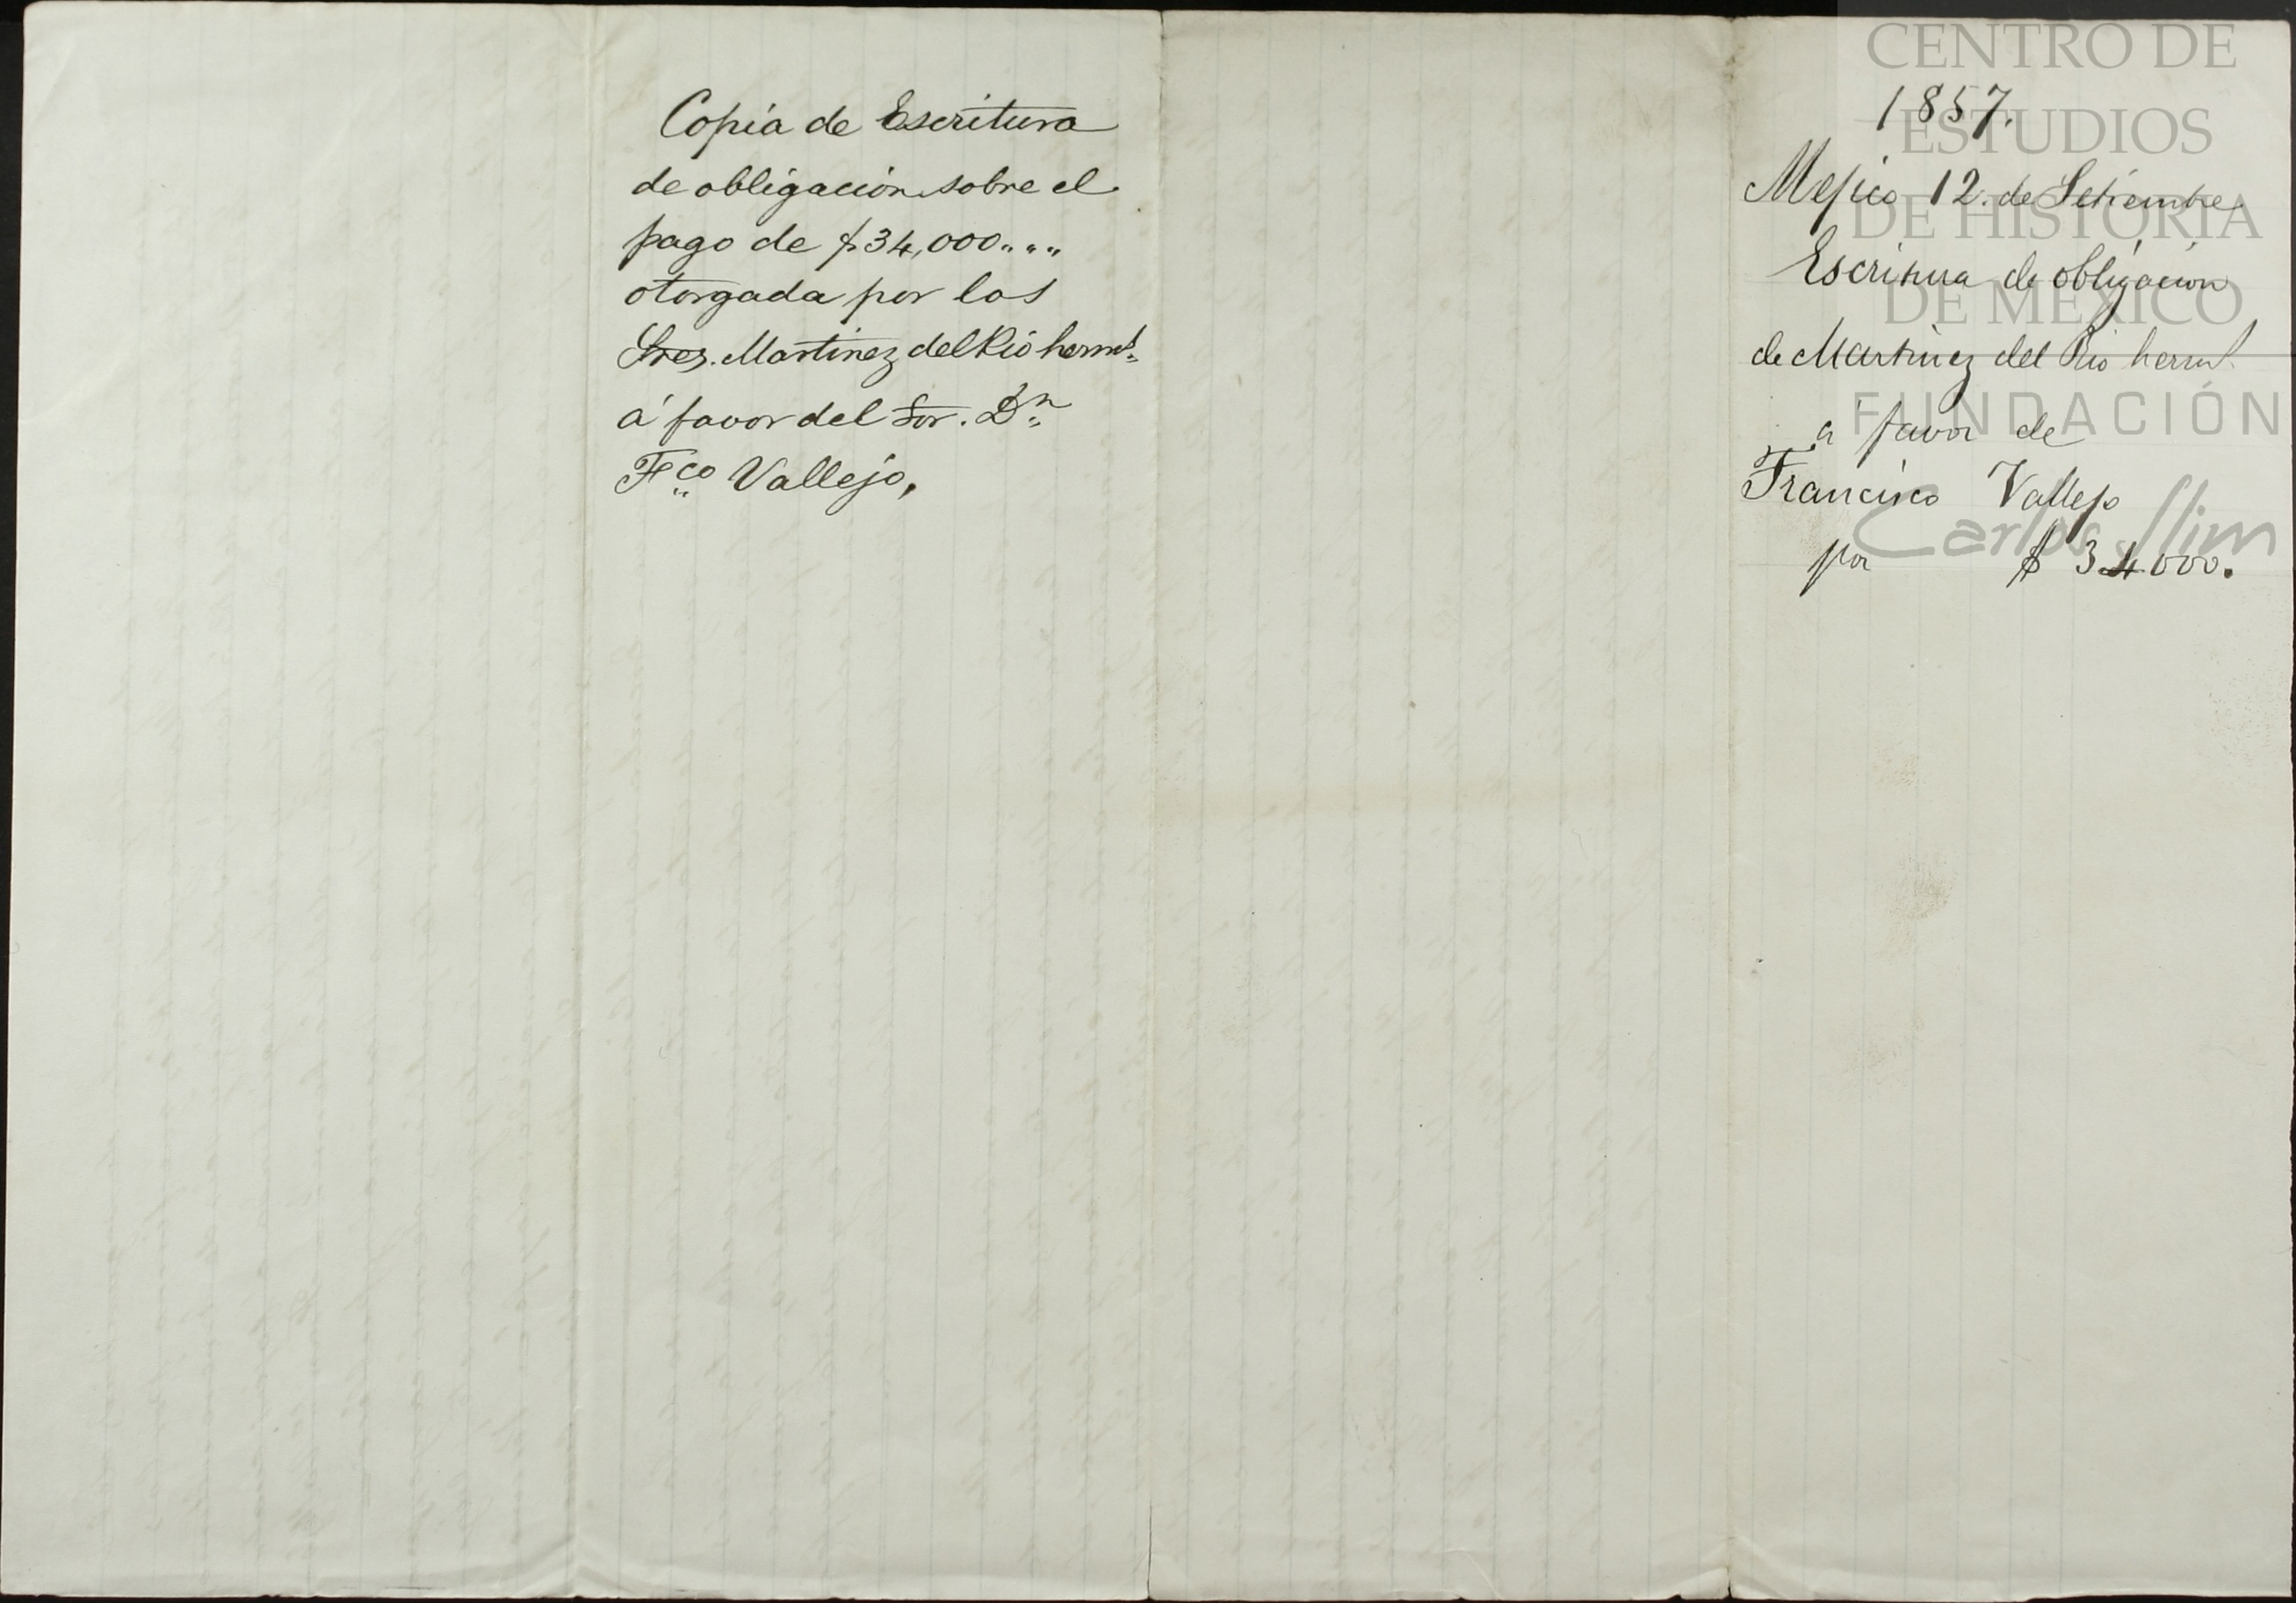 Copia de Escritura
de obligacion sobre el
pago de $34,000 " " "
otorgada por los
Sres. Martinez del Rio herms.
á favor del Sor. Dn.
Fco Vallejo,
1857.
Mejico 12. de Setiembre
Escritura de obligacion
de Martinez del Rio herms.
á favor de
Francisco Vallejo
por $ 34000.
CENTRO DE
ESTUDIOS
DE HISTORIA
DE MÉXICO
FUNDACIÓN
Carlos Slim